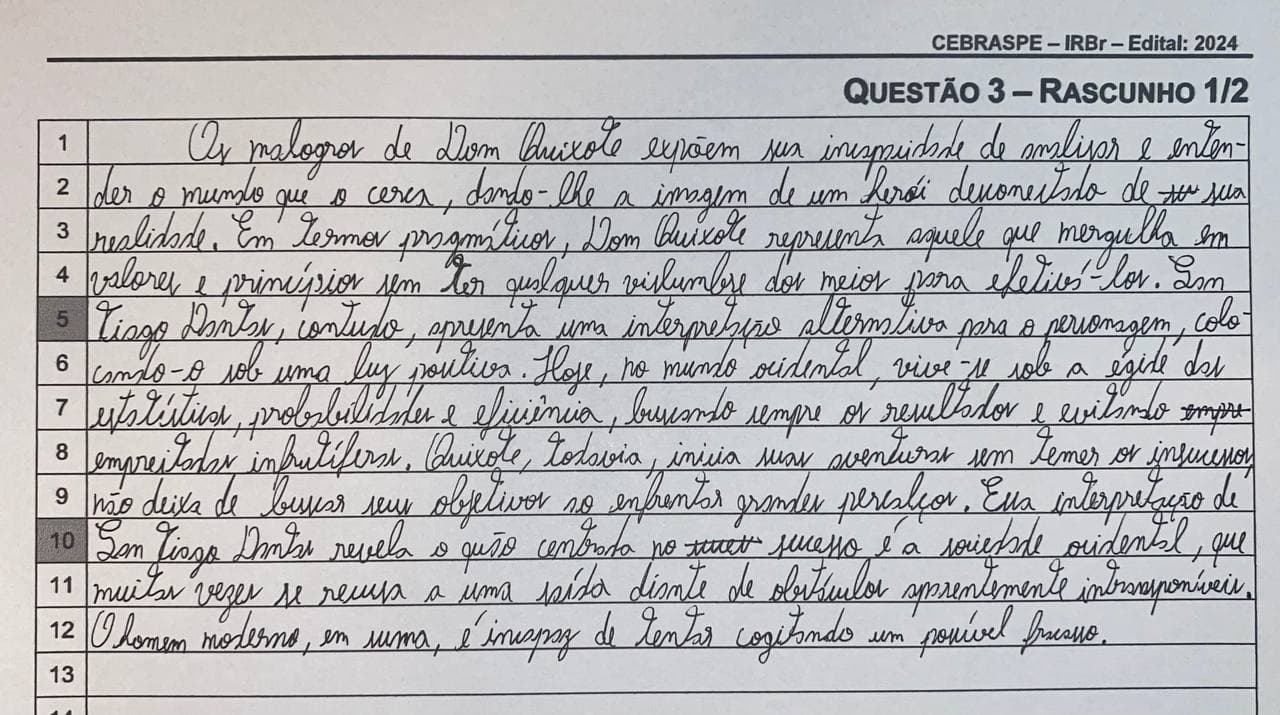 CEBRASPE – IRBr – Edital: 2024
QUESTÃO 3 – RASCUNHO 1/2
1 Os malogros de Dom Quixote expõem sua incapacidade de analisar e enten-
2 der o mundo que o cerca, dando-lhe a imagem de um herói desconectado de sua
3 realidade. Em termos pragmáticos, Dom Quixote representa aquele que mergulha em
4 valores e princípios sem ter qualquer vislumbre dos meios para efetivá-los. San
5 Tiago Dantas, contudo, apresenta uma interpretação alternativa para o personagem, colo-
6 cando-o sob uma luz positiva. Hoje, no mundo ocidental, vive-se sob a égide das
7 estatísticas, probabilidades e eficiência, buscando sempre os resultados e evitando empre
8 empreitadas infrutíferas. Quixote, todavia, inicia suas aventuras sem temer os insucessos,
9 não deixa de buscar seus objetivos ao enfrentar grandes percalços. Essa interpretação de
10 San Tiago Dantas revela o quão centrada no sucesso é a sociedade ocidental, que
11 muitas vezes se recusa a uma saída diante de obstáculos aparentemente intransponíveis.
12 O homem moderno, em suma, é incapaz de tentar cogitando um possível fracasso.
13